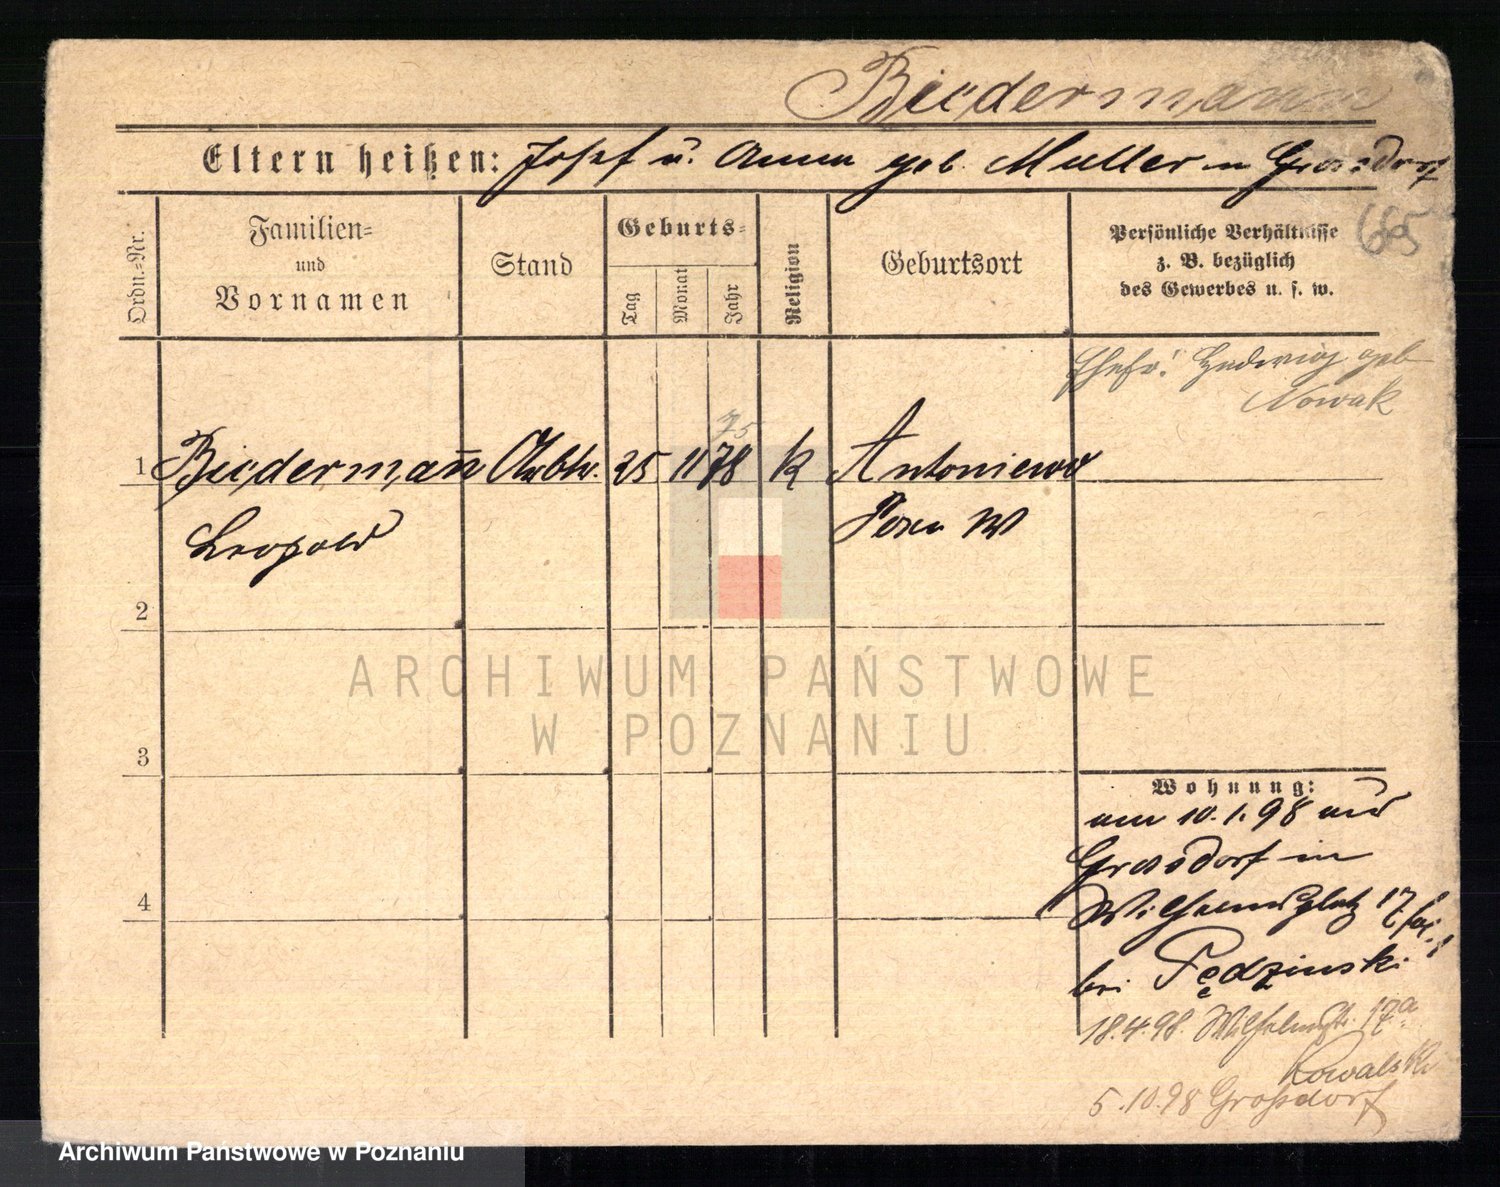 Biedermann
Eltern heißen: Josef u. Anna geb. Muller in Grossdorf
665
Ordn.=Nr.
Familien=
und
Vornamen
Stand
Geburts=
Tag
Monat
Jahr
Religion
Geburtsort
Persönliche Verhältnisse
z. B. bezüglich
des Gewerbes u. s. w.
Ehefr: Hedwig geb
Nowak
75
1 Biedermañ Arbtr. 25 11 78 k Antoniewo
Leopold Posen W
2
3
4
Wohnung:
am 10.1.98 aus
Grossdorf in
Wilhelmsplatz 17
bei Pędzinski
18.4.98. Wilhelmstr. 17a
Kowalski
5.10.98 Großdorf
ARCHIWUM PAŃSTWOWE
W POZNANIU
Archiwum Państwowe w Poznaniu